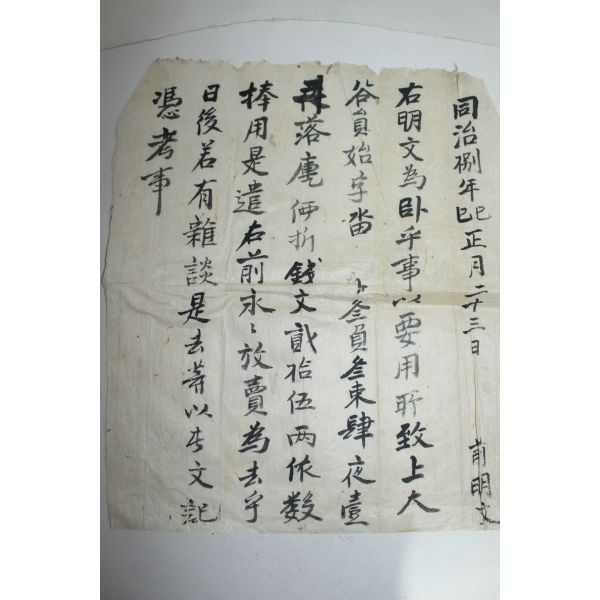 同治捌年己巳正月二十三日 前明文
右明文為卧乎事以要用所致上大
谷員始字畓 叄負叄束肆夜壹
落庫価折錢文貳拾伍兩依數
捧用是遣右前永〻放賣為去乎
日後若有雜談是去等以此文記
憑考事